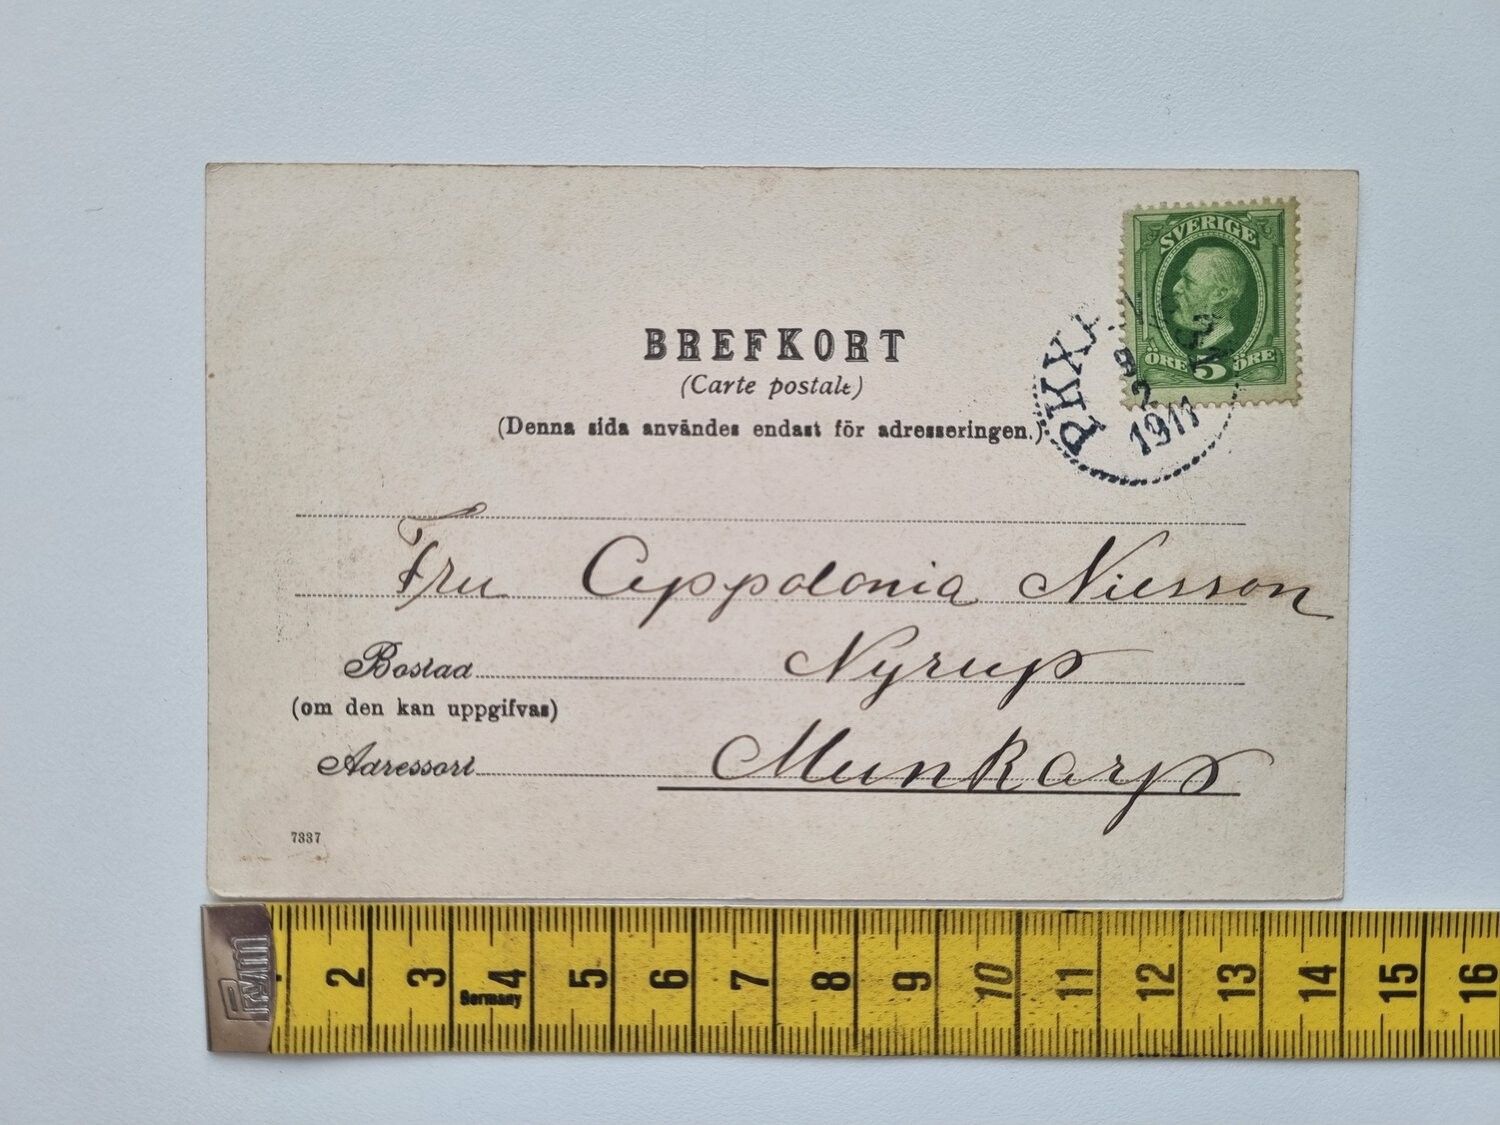 SVERIGE
ÖRE 5 ÖRE
PKXP
2
1911
BREFKORT
(Carte postale)
(Denna sida användes endast för adresseringen.)
Fru Appolonia Nilsson
Bostad Nyrup
(om den kan uppgifvas)
Adressort Munkarp
7337
Prym
1 2 3 4 5 6 7 8 9 10 11 12 13 14 15 16
Germany